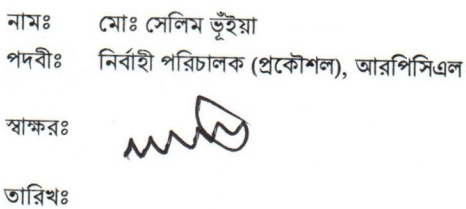 নামঃ মোঃ সেলিম ভূঁইয়া
পদবীঃ নির্বাহী পরিচালক (প্রকৌশল), আরপিসিএল
স্বাক্ষরঃ
তারিখঃ